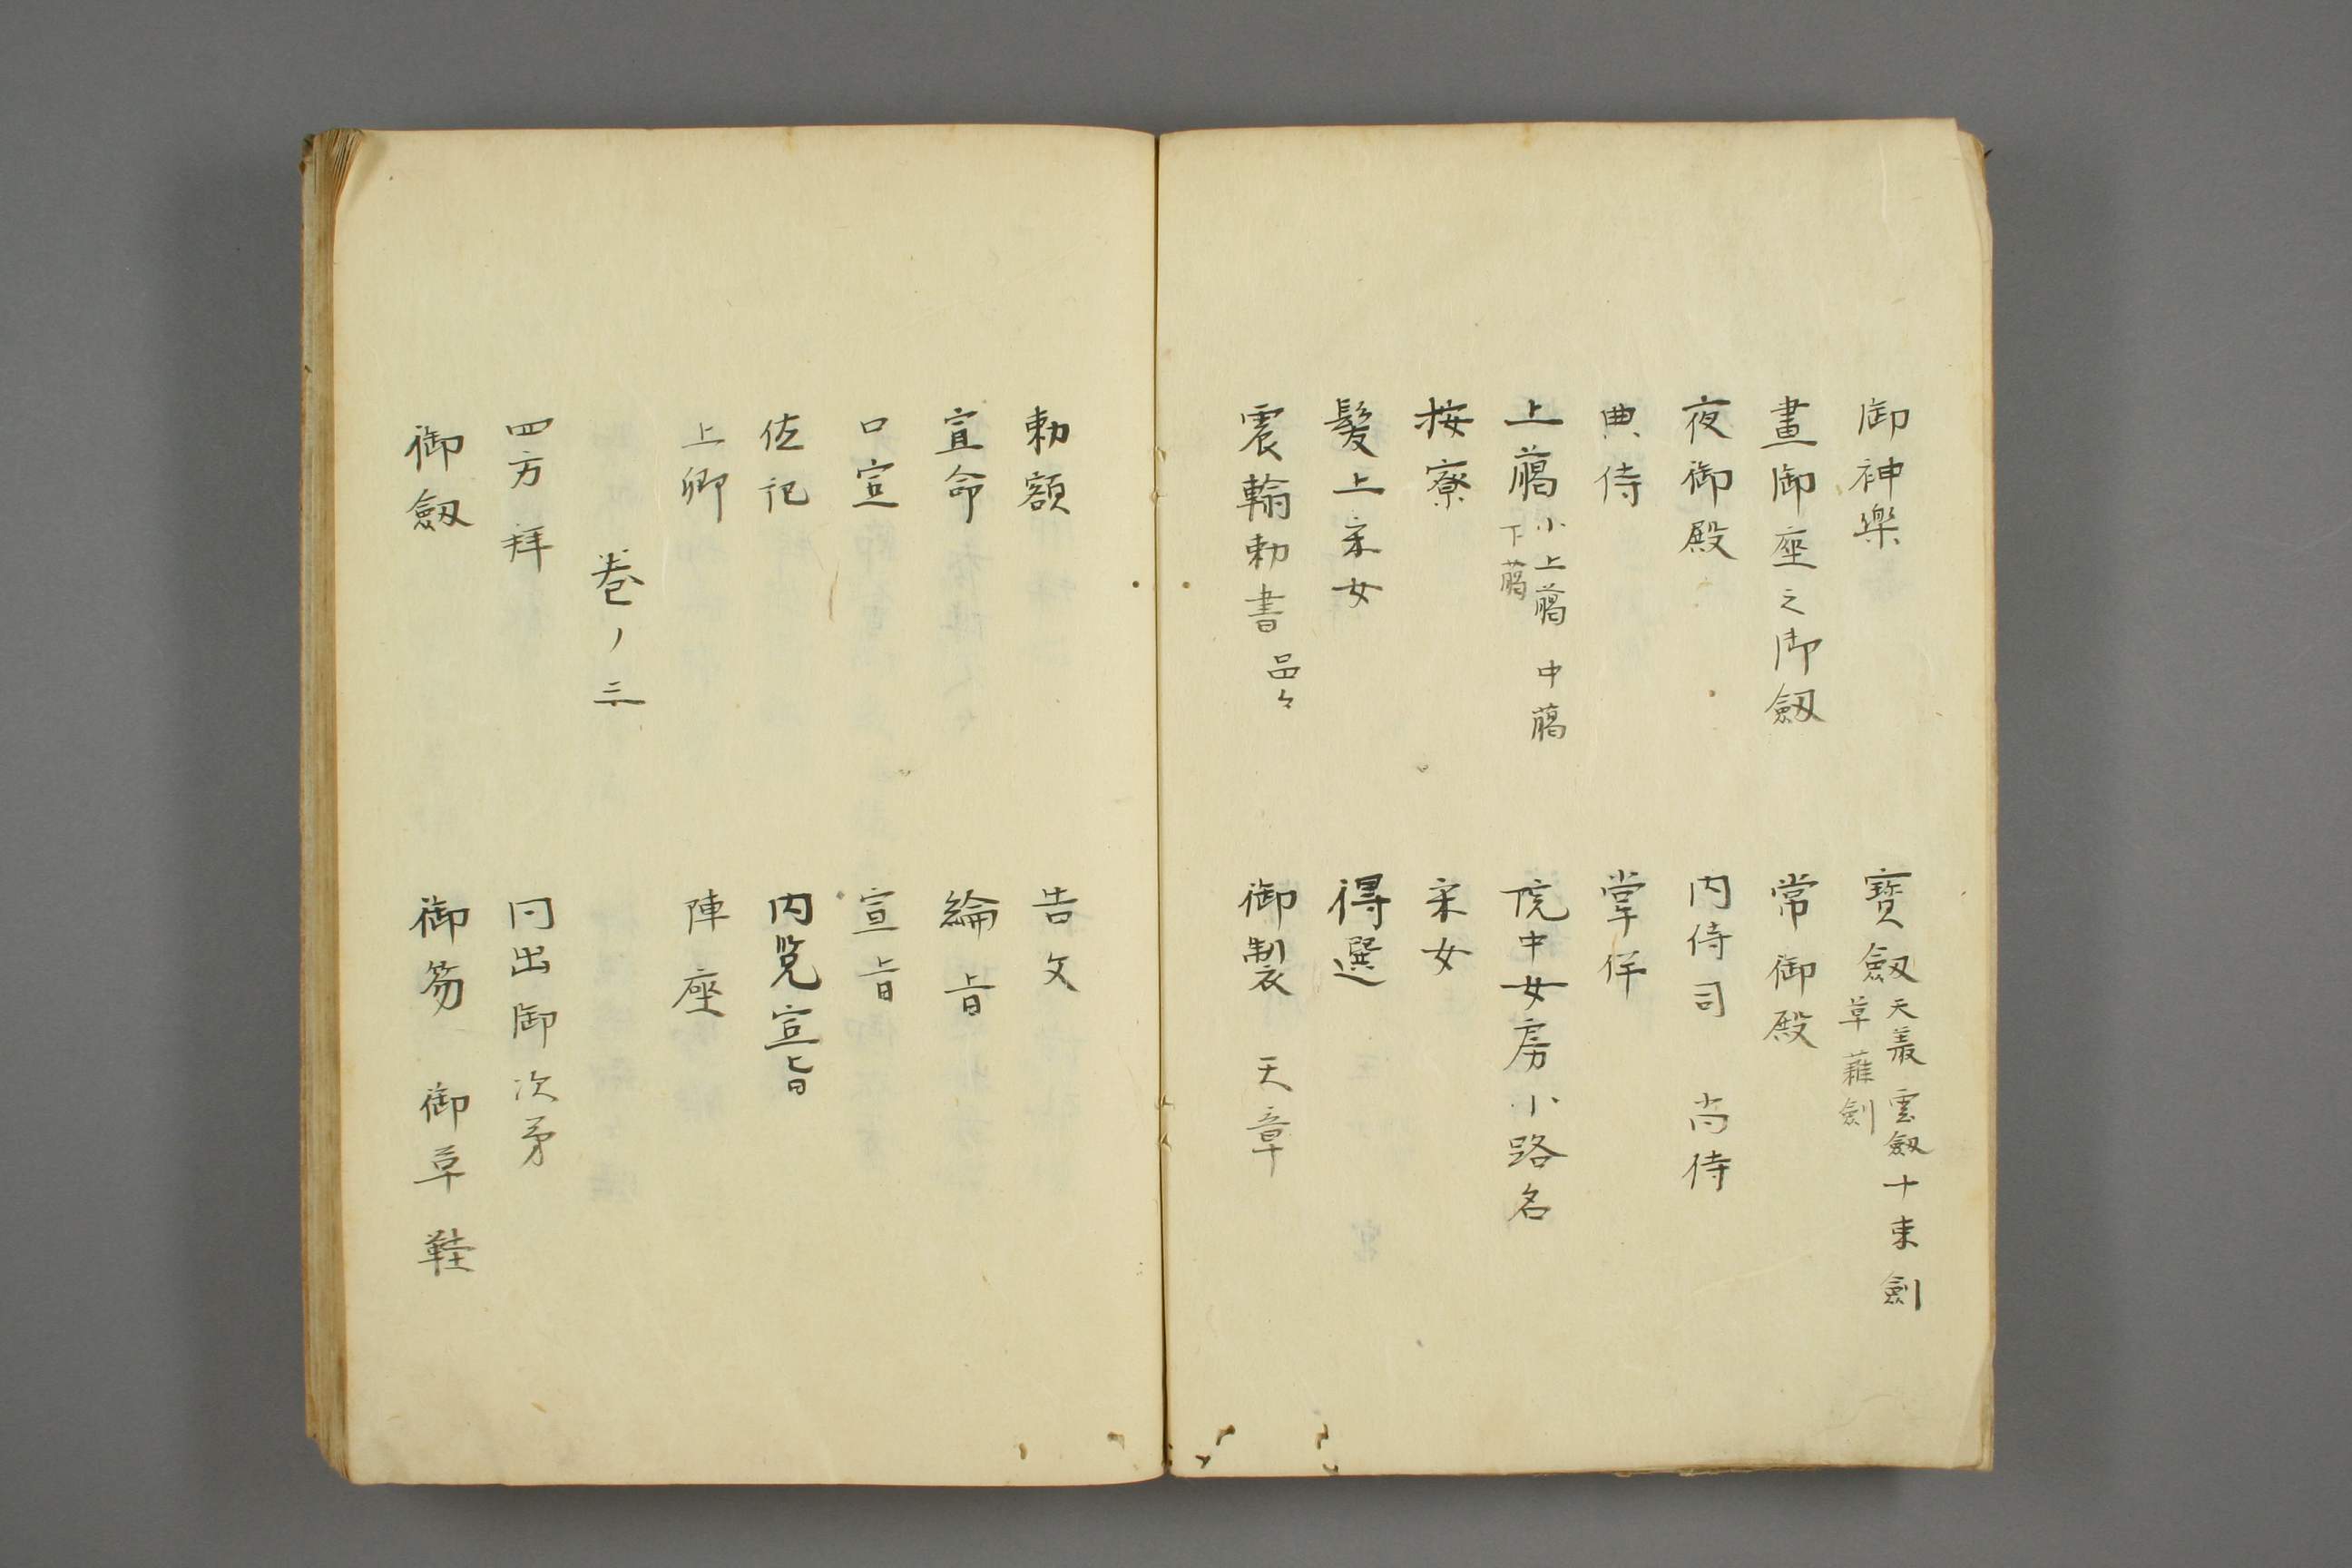 御神樂
寶劔 天叢雲劔 十束劍
草薙劍
晝御座之御劔
常御殿
夜御殿
内侍司 尚侍
典侍
掌侍
上﨟 小上﨟 中﨟
下﨟
院中女房小路名
按寮
采女
髪上采女
得選
震翰勅書 品々
御製 天章
勅額
告文
宣命
綸旨
口宣
宣旨
位記
内覧宣旨
上卿
陣座
巻ノ三
四方拜
同出御次第
御劔
御笏 御草鞋